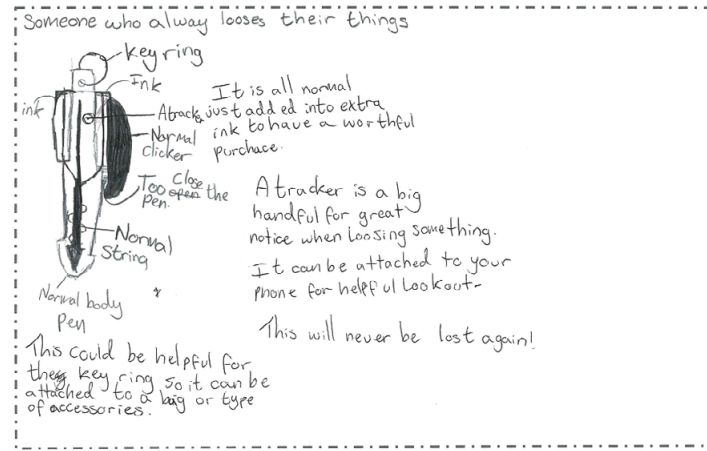 Someone who alway looses their things
Key ring
Ink
ink
Atracker
Normal
clicker
Close
Too open the
Pen.
Normal
String
Normal body
Pen
It is all normal
just added into extra
ink to have a worthful
purchace.
A tracker is a big
handful for great
notice when loosing something.
It can be attached to your
phone for helpful lookout-
This will never be lost again!
This could be helpful for
the key ring so it can be
attached to a bag or type
of accessories.